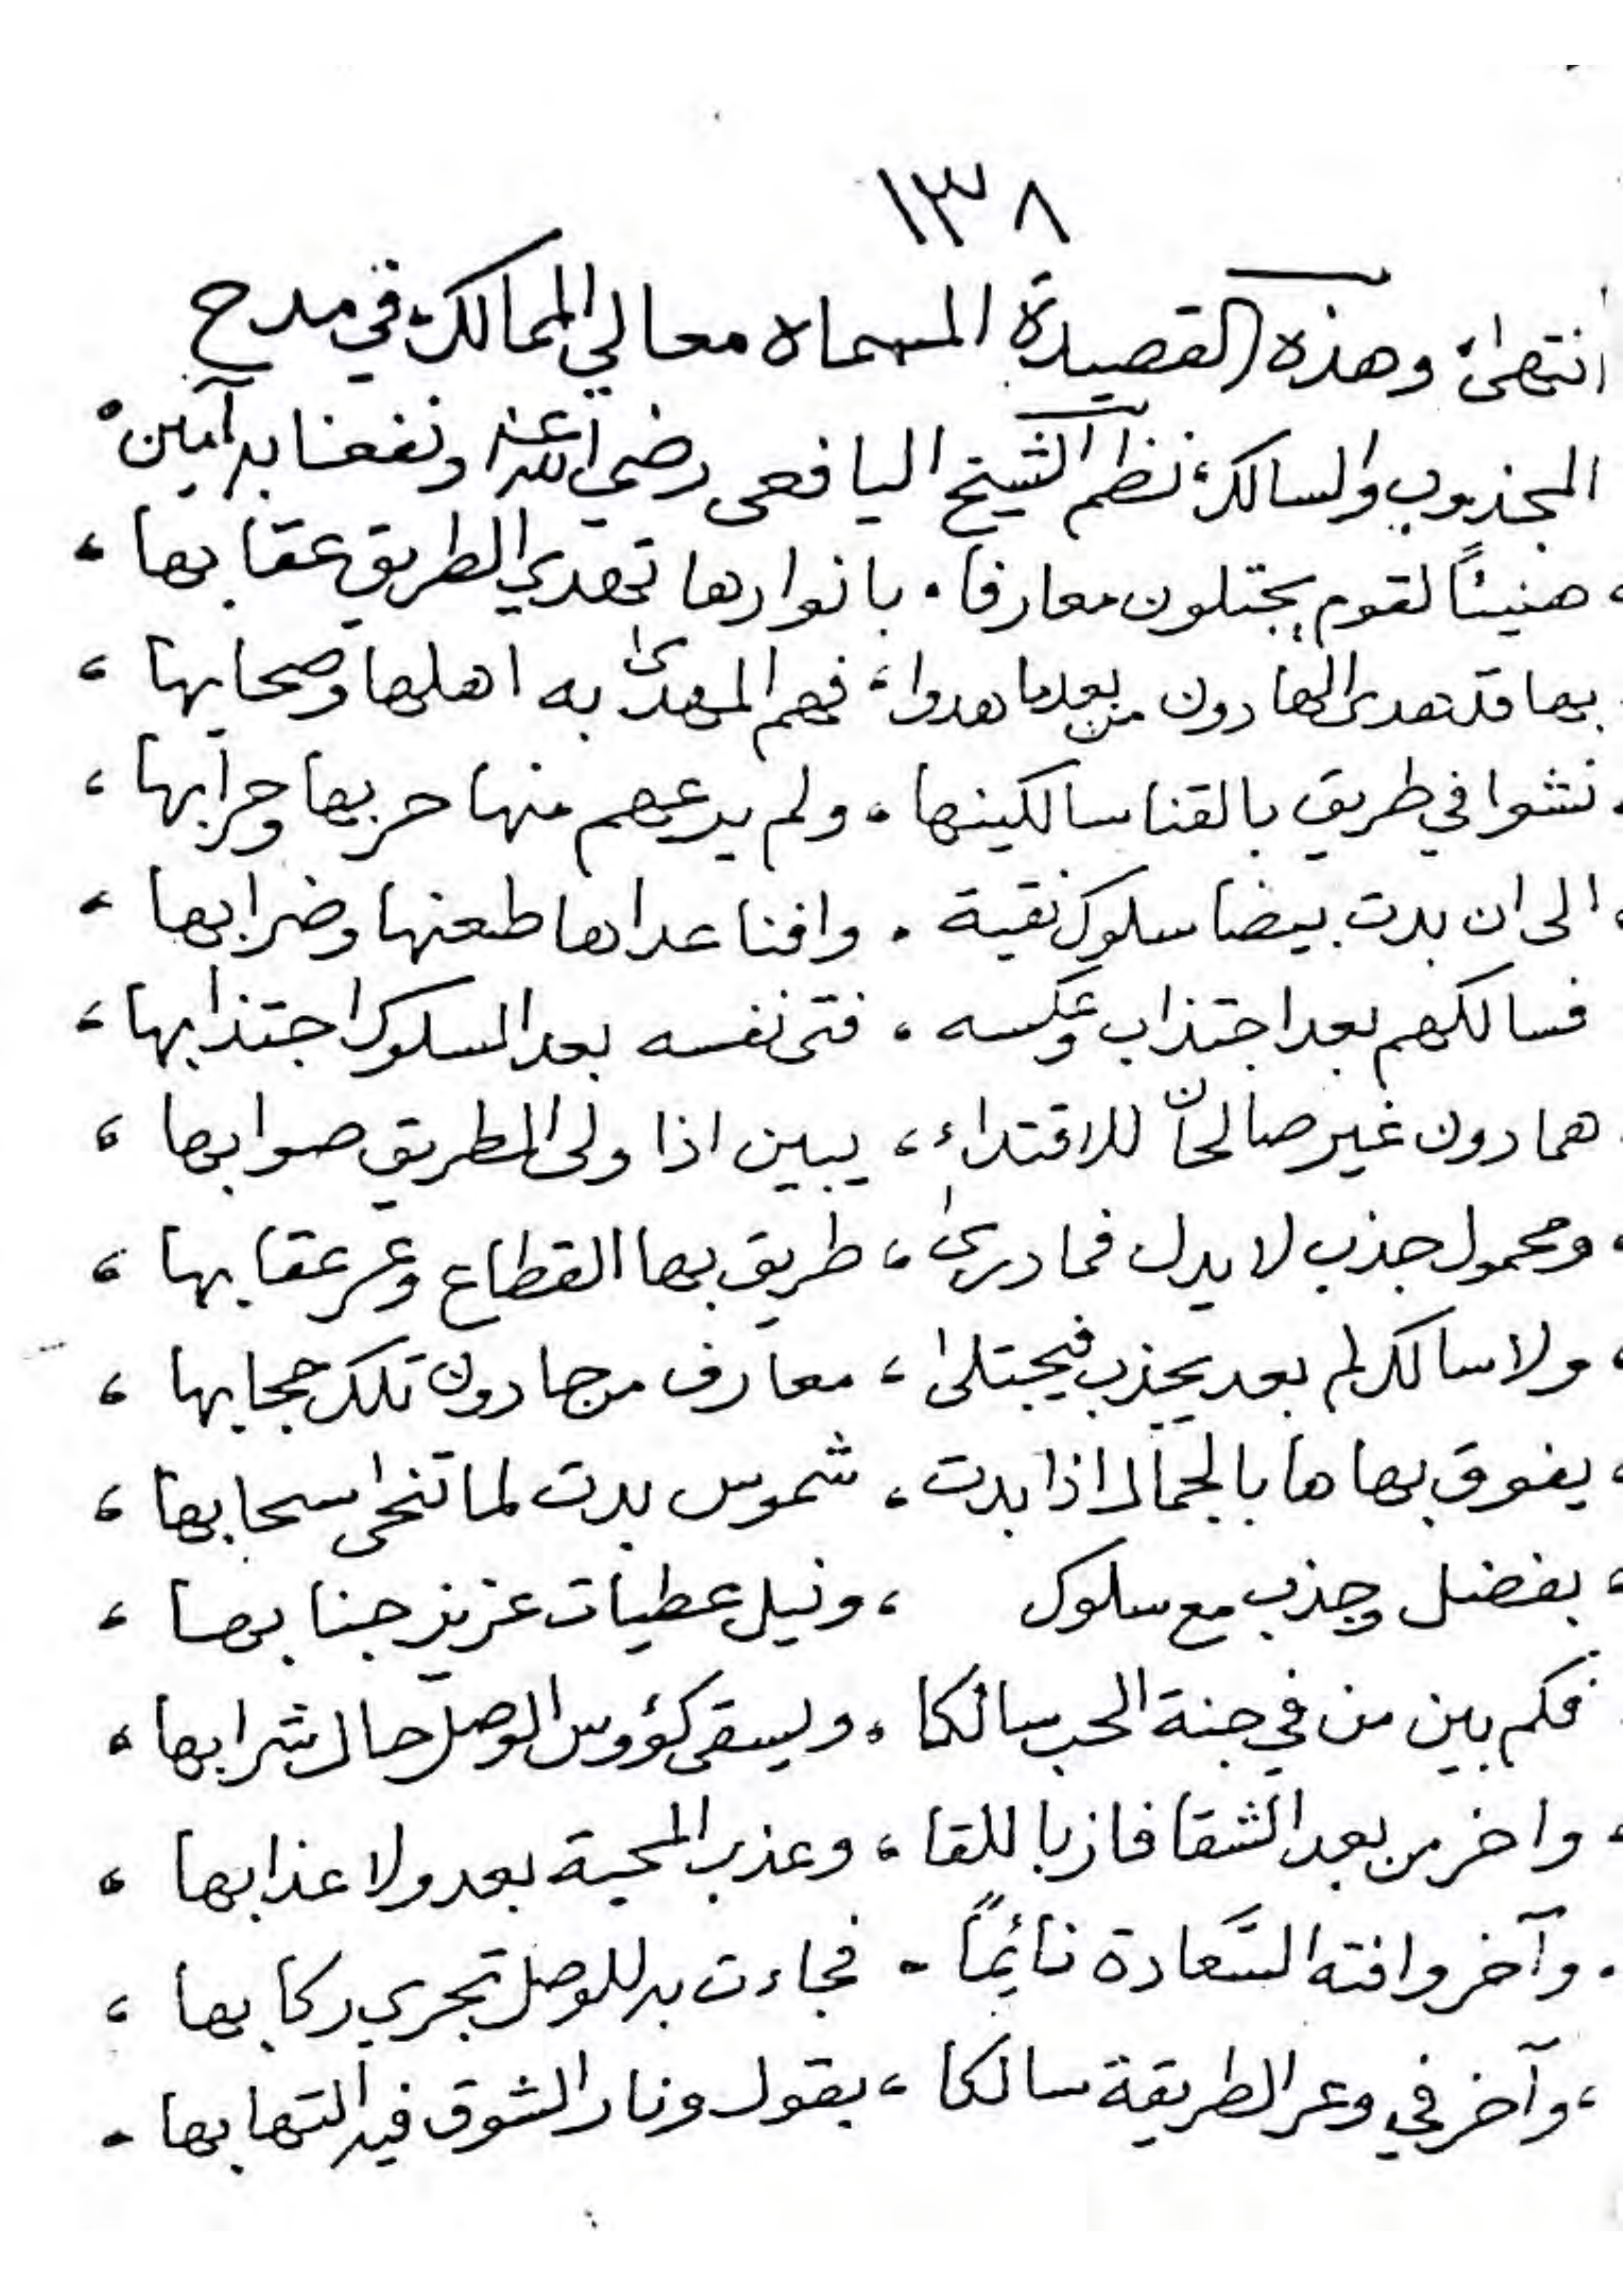 ١٣٨
انتهى، وهذه القصيدة المسماه معالي الممالك، في مدح
المجذوب والسالك، نظم الشيخ اليافعى رضي الله عنه ونفعنا به آمين
، هنيئاً لقوم يجتلون معارفا . بانوارها تهدي الطريق عقابها ،
بها قد هدى الهادون من بعدما هدوا ، فهم المهدى به اهلها وصحابها ،
، نشوا في طريق بالقنا سالكينها ، ولم يرعهم منها حربها وحرابها ،
، الى ان بدت بيضا سلوك نقية . وافنا عداها طعنها وضرابها ،
فسالكهم بعد اجتذاب وعكسه ، فتى نفسه بعد السلوك اجتذابها ،
هما دون غير صالحان للاقتداء ، يبين اذا ولى الطريق صوابها ،
، ومحمول جذب لا يدل فما درى ، طريق بها القطاع وعر عقابها ،
، ولا سالك لم بعد يجذب فيجتلى ، معارف مرجا دون تلك حجابها ،
، يفوق بهاها بالجمال اذا بدت ، شموس بدت لما تنحى سحابها ،
، بفضل وجذب مع سلوك ، ونيل عطيات عزيز جنابها ،
فكم بين من في جنة الحب سالكا ، ويسقى كؤوس الوصل حال شرابها ،
، واخر من بعد الشقا فاز باللقا ، وعذب المحبة بعد ولا عذابها ،
. وآخر وافته السَّعادة نائماً - فجاءت به للوصل تجري ركابها ،
، وآخر في وعر الطريقة سالكا ، يقول ونار الشوق فيه التهابها -